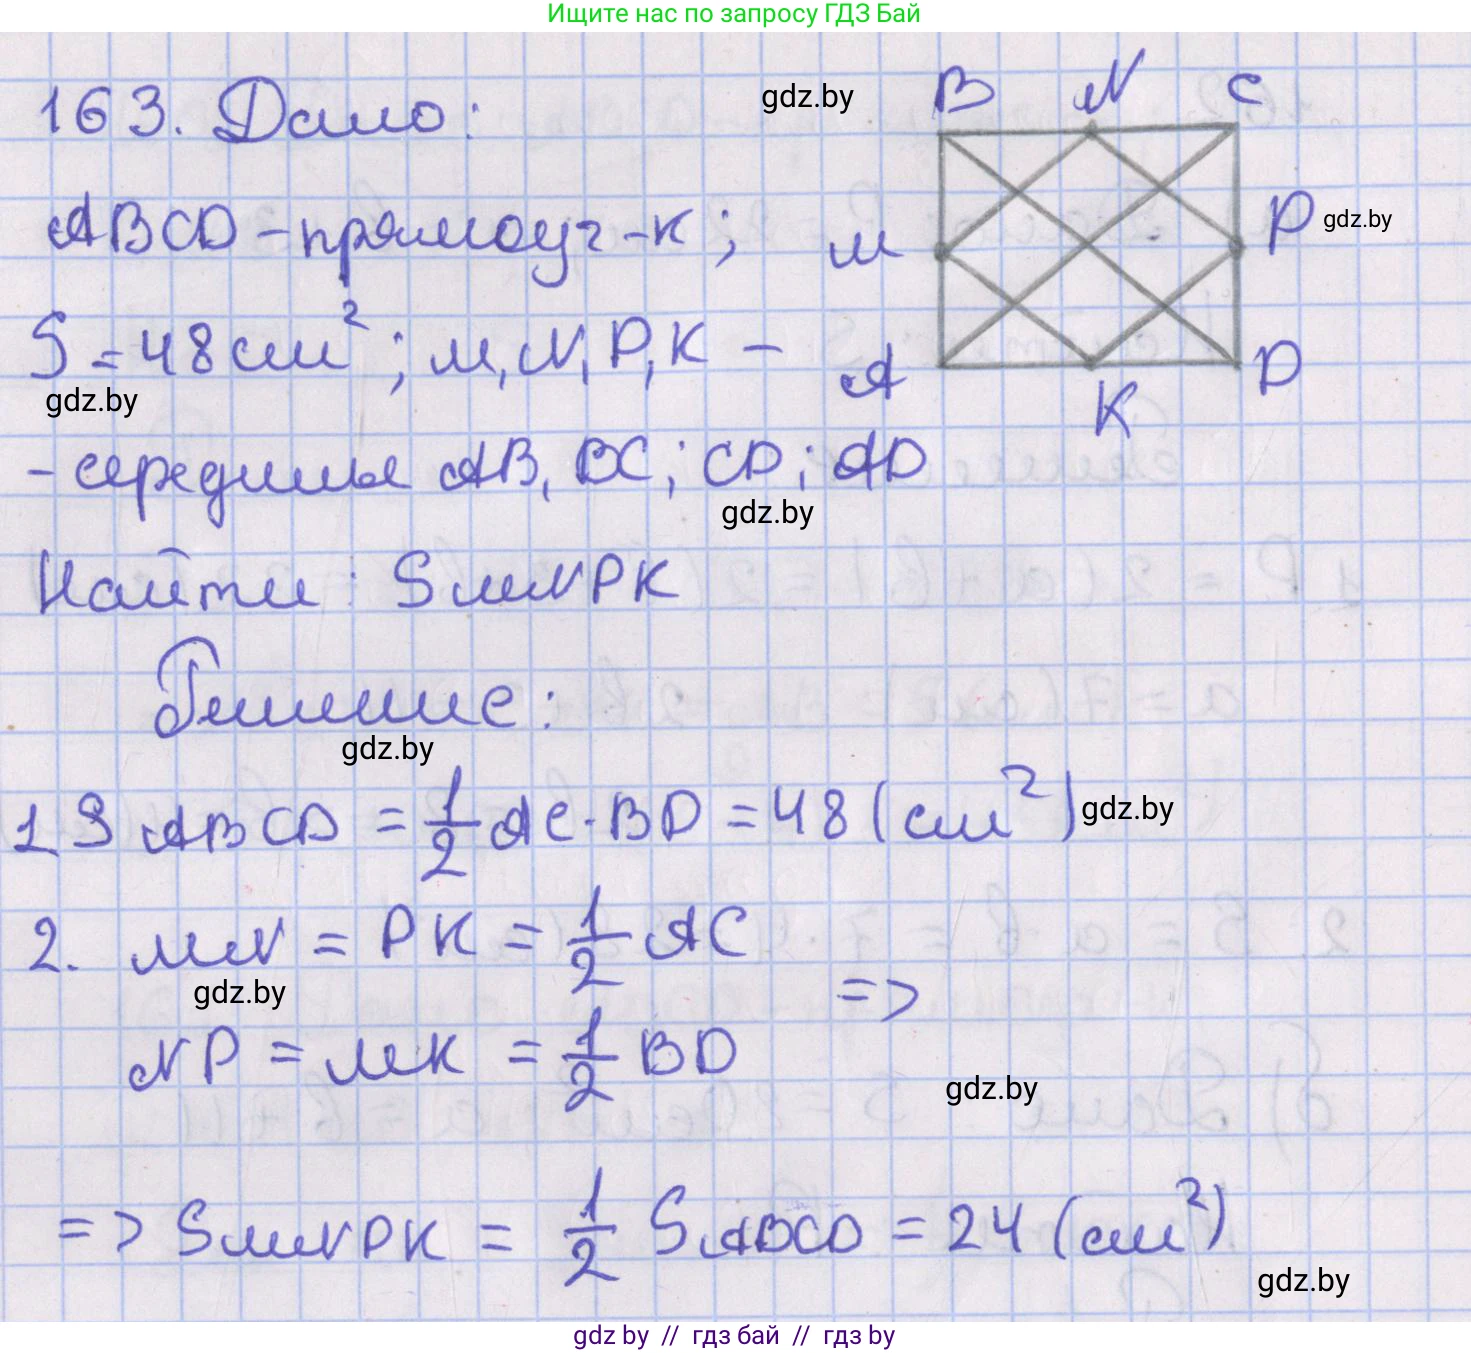 Ищите нас по запросу ГДЗ Бай
163. Дано:
gdz.by
B N C
ABCD - прямоуг-к;
M
P
gdz.by
S = 48 см²; M, N, P, K -
A
D
gdz.by
K
- середины AB, BC; CD; AD
gdz.by
Найти: S MNPK
Решение:
gdz.by
1. S ABCD = 1/2 AC · BD = 48 (см²)
gdz.by
2. MN = PK = 1/2 AC
gdz.by
=>
NP = MK = 1/2 BD
gdz.by
=> S MNPK = 1/2 S ABCD = 24 (см²)
gdz.by
gdz by // гдз бай // гдз by